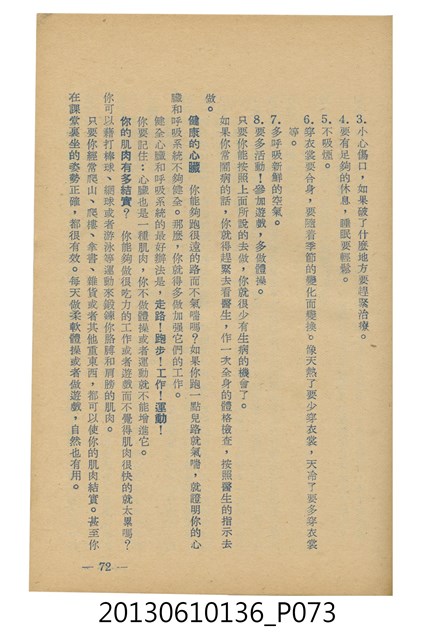 3. 小心傷口，如果破了什麼地方要趕緊治療。
4. 要有足夠的休息，睡眠要輕鬆。
5. 不吸煙。
6. 穿衣裳要合身，要隨着季節的變化而變換。像天熱了要少穿衣裳，天冷了要多穿衣裳
等。
7. 多呼吸新鮮的空氣。
8. 要多活動！參加遊戲，多做體操。
只要你能按照上面所說的去做，你就很少有生病的機會了。
如果你常鬧病的話，你就得趕緊去看醫生，作一次全身的體格檢查，按照醫生的指示去
做。
健康的心臟　你能夠跑很遠的路而不氣喘嗎？如果你跑一點兒路就氣喘，就證明你的心
臟和呼吸系統不夠健全。那麼，你就得多做加强它們的工作。
健全心臟和呼吸系統的最好辦法是，走路！跑步！工作！運動！
你要記住：心臟也是一種肌肉，你不做體操或者運動就不能增進它。
你的肌肉有多結實？　你能夠做很吃力的工作或者遊戲而不覺得肌肉很快的就太累嗎？
你可以藉打棒球、網球或者游泳等運動來鍛鍊你胳膊和肩膀的肌肉。
只要你經常爬山、爬樓、拿書、雜貨或者其他重東西，都可以使你的肌肉結實。甚至你
在課堂裏坐的姿勢正確，都很有效。每天做柔軟體操或者做遊戲，自然也有用。
— 72 —
20130610136_P073